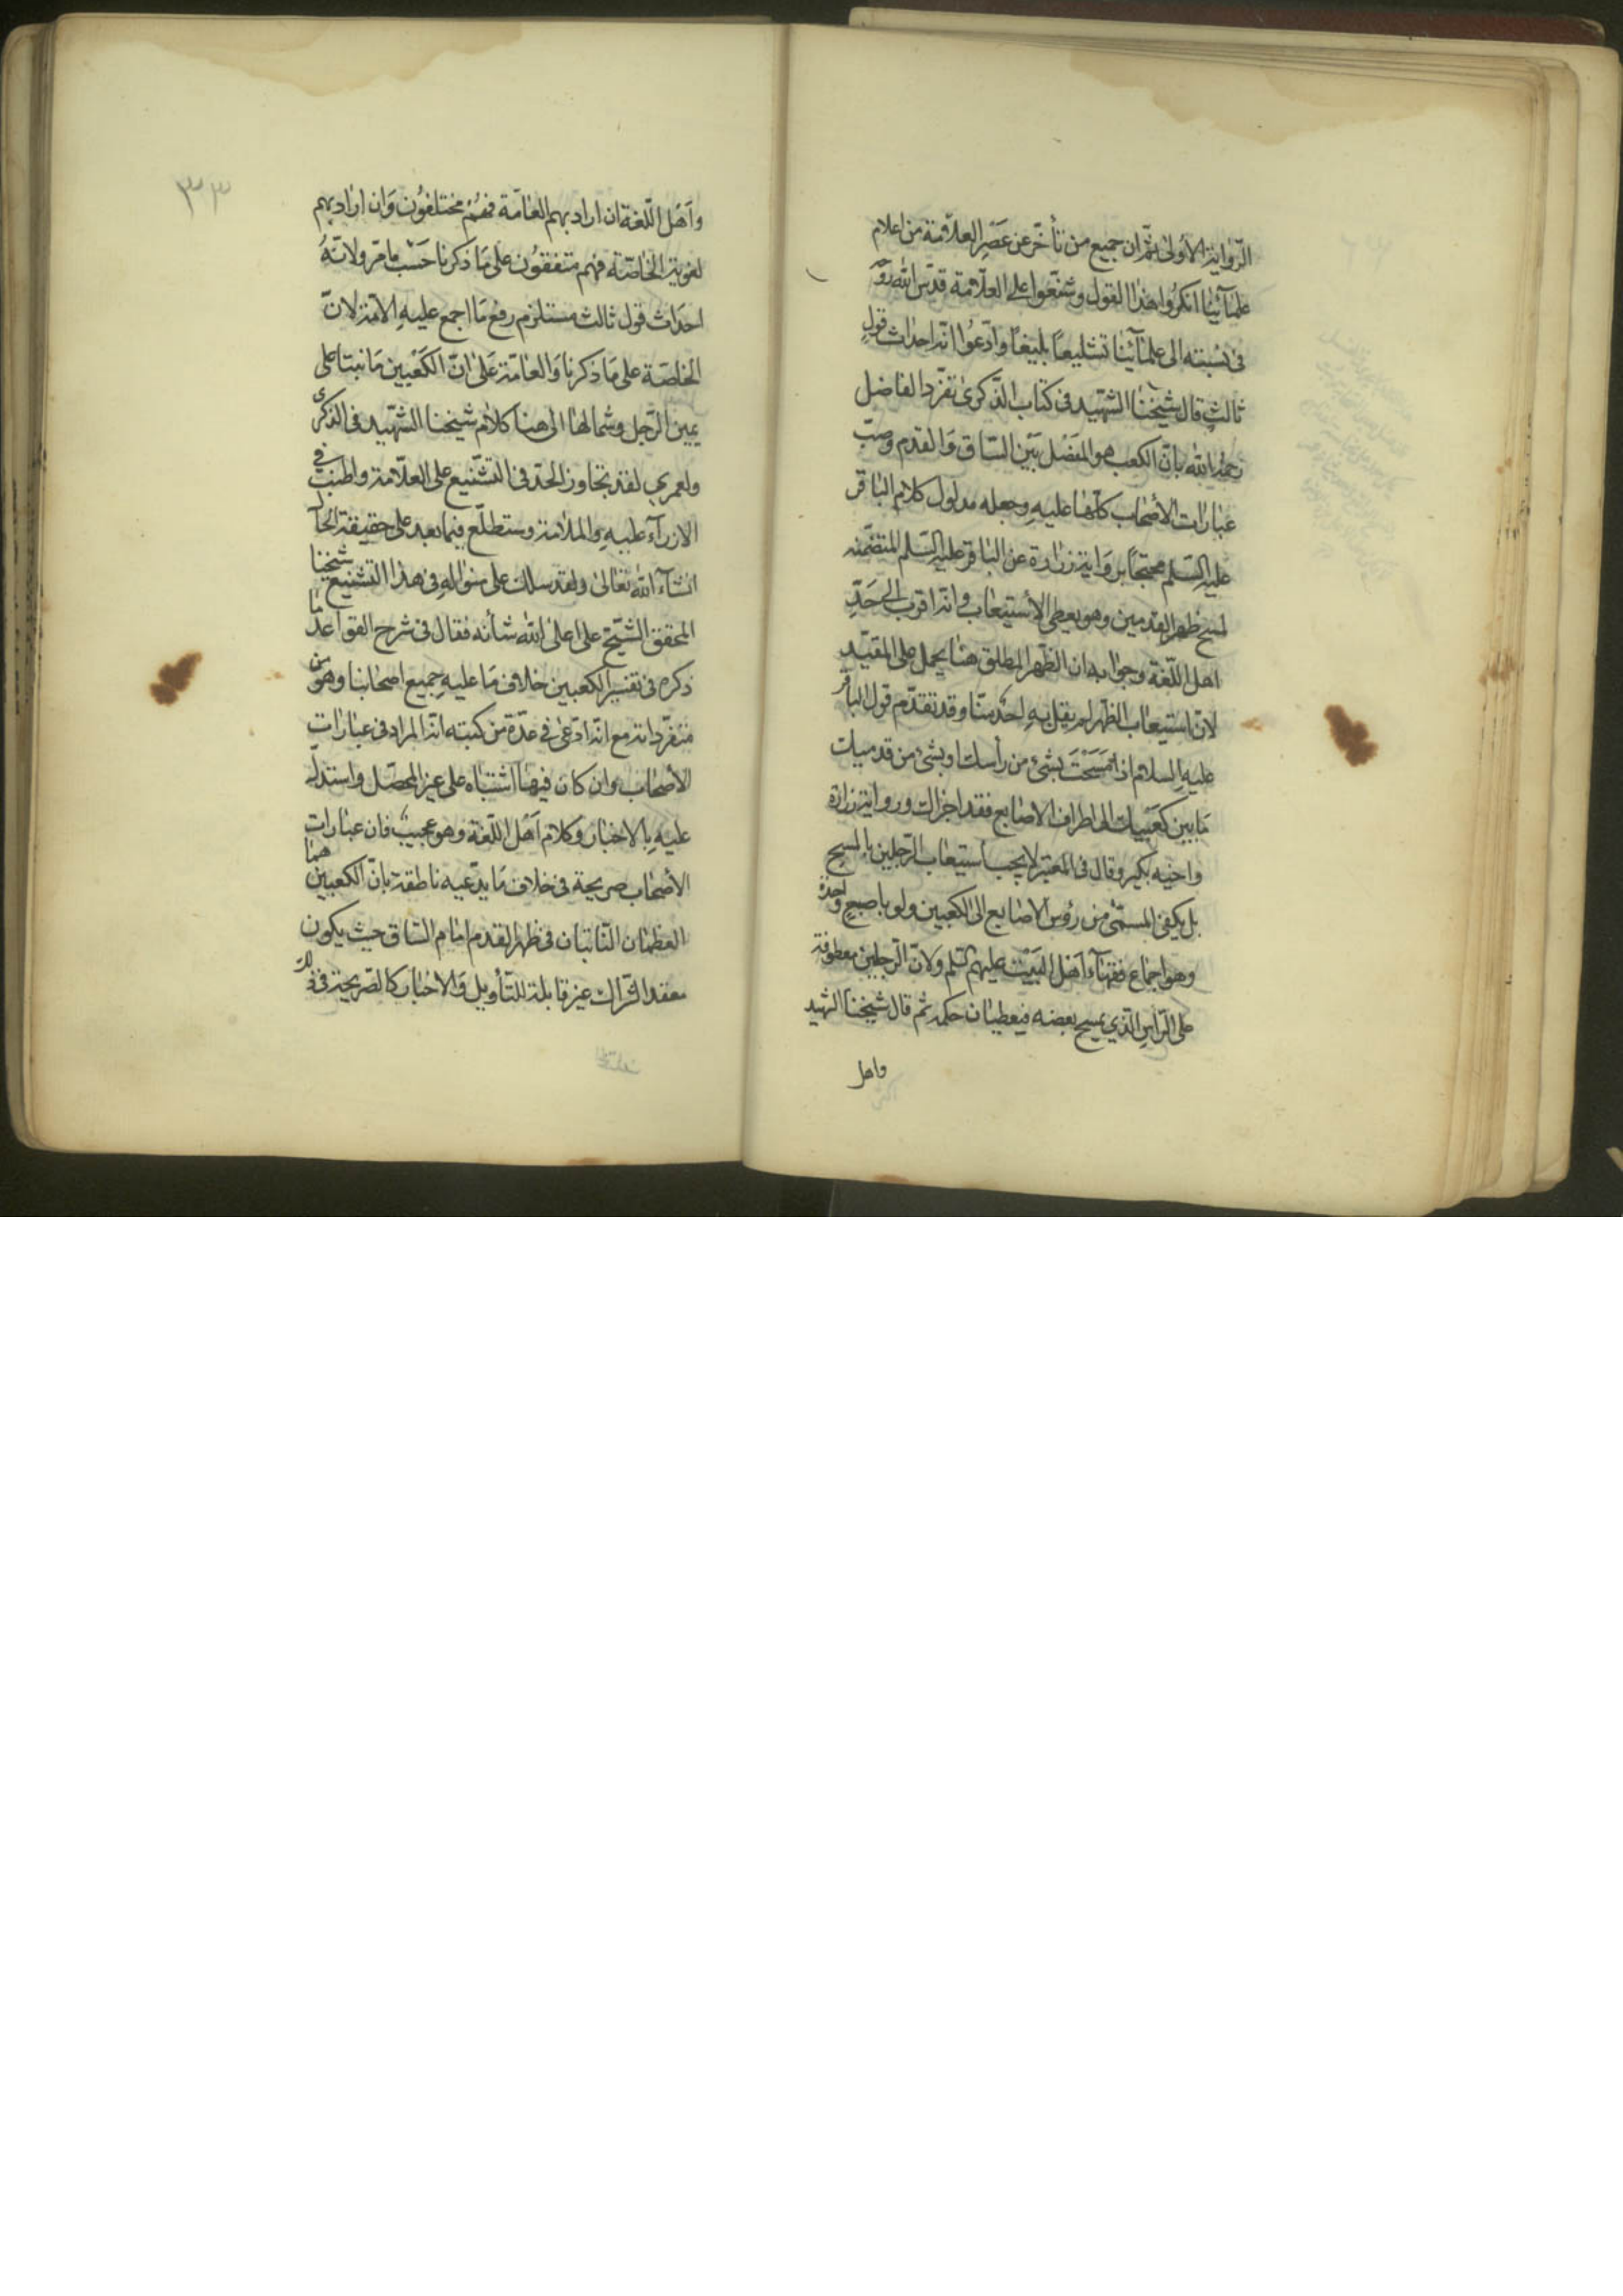 الرّواية الأولى ثمّ ان جميع من تأخّر عن عصر العلاّمة من اعلام
علمآئنا انكروا هذا القول وشنّعوا على العلّامة قدّس الله روحه
فى نسبته الى علمآئنا تشنيعاً بليغاً وادّعوا انّه احداث قول
ثالث قال شيخنا الشّهيد فى كتاب الذّكرى تفرّد الفاضل
رحمه الله بانّ الكعب هو المفصل بين السّاق والقدم وصبّ
عبارات الأصحاب كلّها عليه وجعله مدلول كلام الباقر
عليه السّلم محتجّاً برواية زرارة عن الباقر عليه السّلم المتضمّنه
لمسح ظهر القدمين وهو يعطى الأستيعاب وانه اقرب الى حدّ
اهل اللّغة وجوابه ان الظهر المطلق هنا يحمل على المقيّد
لانّ استيعاب الظهر لم يقل به احد منّا وقد تقدّم قول الباقر
عليه السلام اذا مسحت بشئ من رأسك او بشئ من قدميك
ما بين كعبيك الى اطراف الاصابع فقد اجزاك ورواية زرارة
واخيه بكير وقال فى المعتبر لا يجب استيعاب الرّجلين بالمسح
بل يكفى المسمّى من رؤس الاصابع الى الكعبين ولو باصبع واحدة
وهو اجماع فقهآء اهل البيت عليهم السّلم ولانّ الرّجلين معطوفة
على الرّأس الّذي يمسح بعضه فيعطيان حكمه ثم قال شيخنا الشهيد
واهل
٣٣
واهل اللّغة ان اراد بهم العامّة فهم مختلفون وان اراد بهم
لغوية الخاصّة فهم متفقون على ما ذكرنا حسب ما مرّ ولانّه
احداث قول ثالث مستلزم رفع ما اجمع عليه الامّة لانّ
الخاصّة على ما ذكرنا والعامّة على انّ الكعبين ما نبتا على
يمين الرّجل وشمالها الى هنا كلام شيخنا الشّهيد فى الذكرى
ولعمري لقد تجاوز الحدّ فى التّشنيع على العلّامة واطنب فى
الازرآء عليه والملامة وستطلّع فيما بعد على حقيقة الحال
انشآء الله تعالى ولقد سلك على منواله فى هذا التشنيع شيخنا
المحقق الشّيخ على اعلى الله شأنه فقال فى شرح القواعد ما
ذكره فى تفسير الكعبين خلاف ما عليه جميع اصحابنا وهو من
متفرّداته مع انّه ادّعى فى عدّة من كتبه انّه المراد فى عبارات
الأصحاب وان كان فيها اشتباه على غير المحصّل واستدلّ
عليه بالاخبار وكلام اهل اللّغة وهو عجيب فان عبارات
الأصحاب صريحة فى خلاف ما يدّعيه ناطقة بانّ الكعبين هما
العظمان النّاتبان فى ظهر القدم امام السّاق حيث يكون
معقد الشّراك غير قابلة للتّأويل والاخبار كالصّريحة فى ذلك